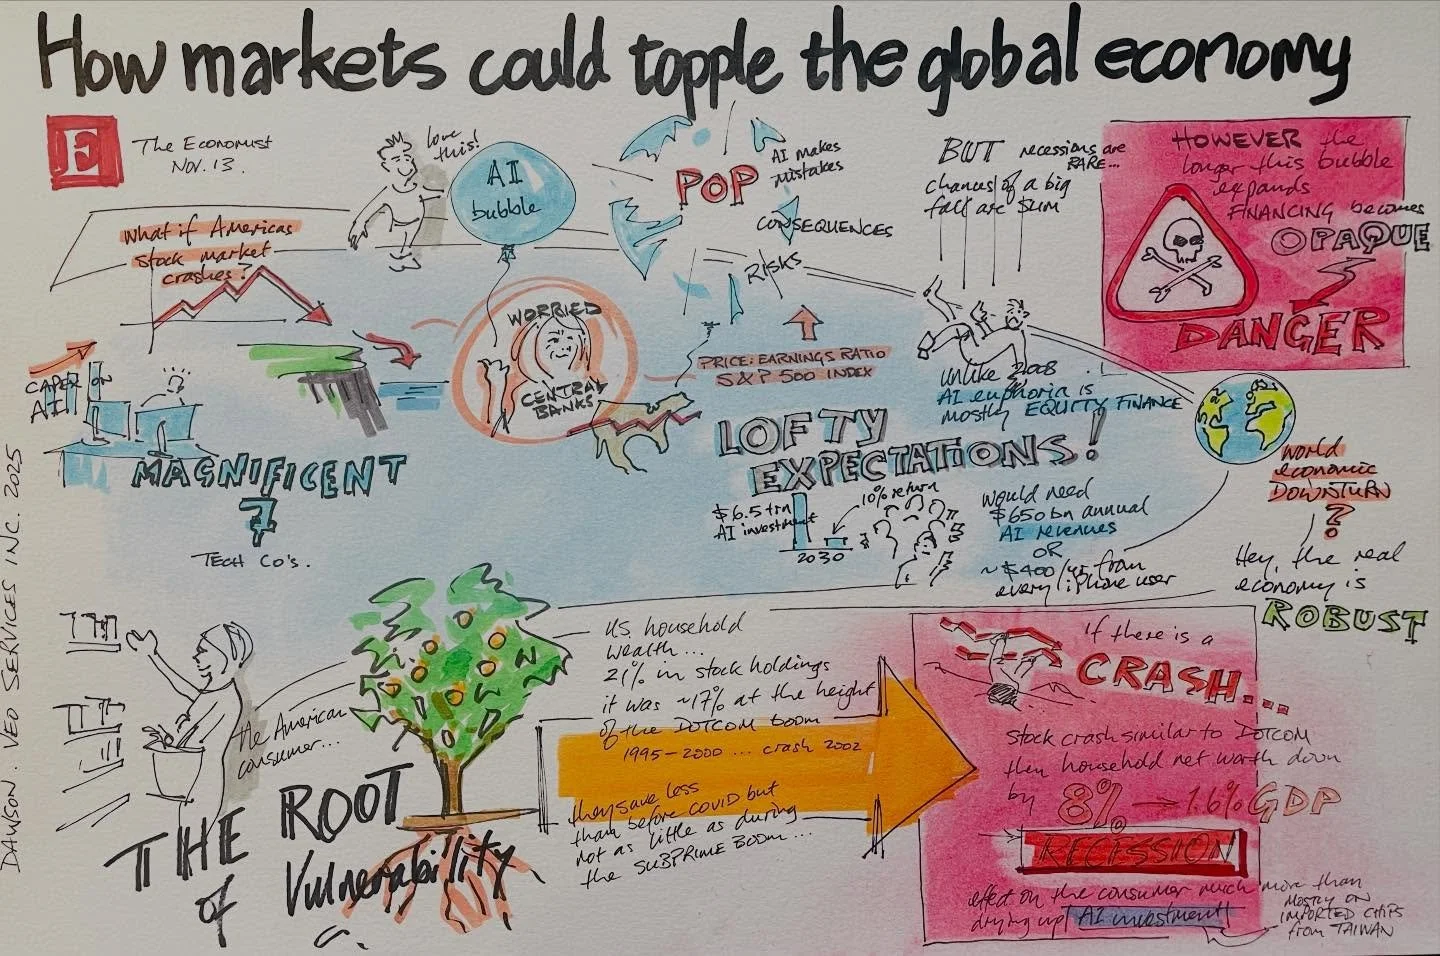 How markets could topple the global economy
E
The Economist
Nov. 13.
love
this!
AI
bubble
POP
AI makes
mistakes
CONSEQUENCES
RISKS
BUT recessions are
RARE...
chances of a big
fall are slim
HOWEVER the
longer this bubble
expands
FINANCING becomes
OPAQUE
DANGER
what if Americas
stock market
crashes?
CAPEX ON
AI
MAGNIFICENT
7
TECH CO'S.
WORRIED
CENTRAL
BANKS
PRICE:EARNINGS RATIO
S&P 500 INDEX
unlike 2008
AI euphoria is
mostly EQUITY FINANCE
LOFTY
EXPECTATIONS!
$6.5 trn
AI investment
10% return
2030
would need
$650bn annual
AI revenues
OR
~$400/yr from
every iphone user
world
economic
DOWNTURN
?
Hey, the real
economy is
ROBUST
the American
consumer...
THE ROOT
of Vulnerability
U.S. household
wealth...
21% in stock holdings
it was ~17% at the height
of the DOTCOM BOOM
1995-2000 ... crash 2002
they save less
than before COVID but
not as little as during
the SUBPRIME BOOM...
if there is a
CRASH...
stock crash similar to DOTCOM
then household net worth down
by 8% → 1.6% GDP
RECESSION
effect on the consumer much more than
drying up AI investment
mostly on
IMPORTED CHIPS
from TAIWAN
DAWSON. VEO SERVICES INC. 2025